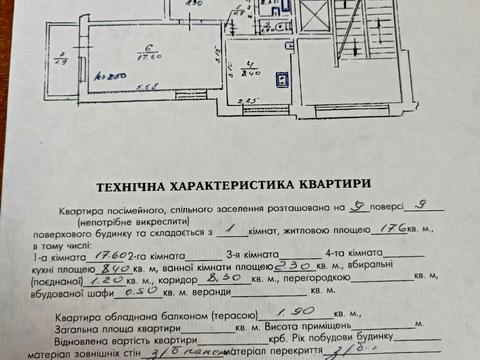 2.90
6
17.60
h=2.50
5.55
3.15
3.15
4
8.40
2.25
7
1.9
ТЕХНІЧНА ХАРАКТЕРИСТИКА КВАРТИРИ
Квартира посімейного, спільного заселення розташована на 9 поверсі 9
(непотрібне викреслити)
поверхового будинку та складається з 1 кімнат, житловою площею 17.6 кв. м.,
в тому числі:
1-а кімната 17.60 2-га кімната 3-я кімната 4-та кімната
кухні площею 8.40 кв. м., ванної кімнати площею 2.30 кв. м., вбиральні
(поєднаної) 1.20 кв. м., коридор 8.30 кв. м., перегородкою кв. м.,
вбудованої шафи 0.50 кв. м. веранди кв. м.
Квартира обладнана балконом (терасою) 1.90 кв. м.,
Загальна площа квартири кв. м. Висота приміщень м.
Відновлена вартість квартири крб. Рік побудови будинку
матеріал зовнішніх стін з/б матеріал перекриття з/б